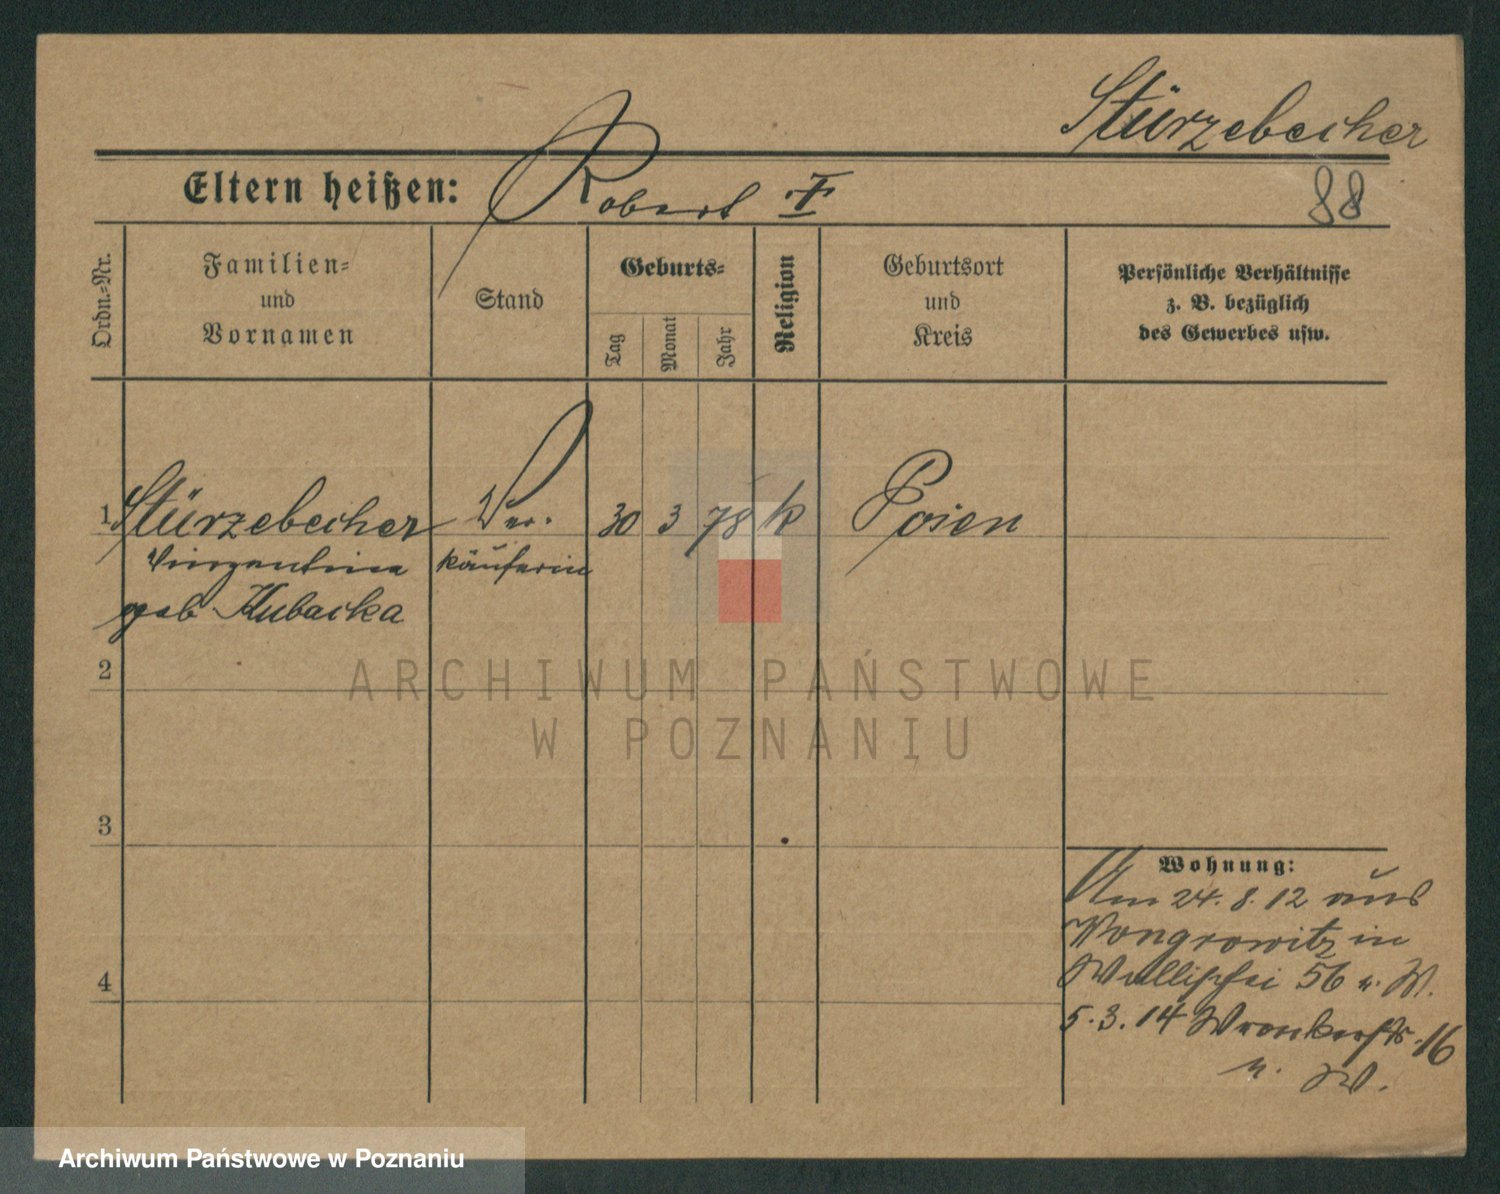 Stürzebecher
Eltern heißen: Robert
88
Ordn.-Nr.
Familien- und Vornamen
Stand
Geburts-
Tag
Monat
Jahr
Religion
Geburtsort und Kreis
Persönliche Verhältnisse
z. B. bezüglich
des Gewerbes usw.
1 Stürzebecher Ver- 30 3 78 k Posen
Vinzentina käuferin
geb Kubacka
2
3
4
Wohnung:
Am 24.8.12 aus
Wongrowitz in
Wallischei 56 u. W.
5.3.14 Wronkerstr. 16
u. W.
ARCHIWUM PAŃSTWOWE
W POZNANIU
Archiwum Państwowe w Poznaniu